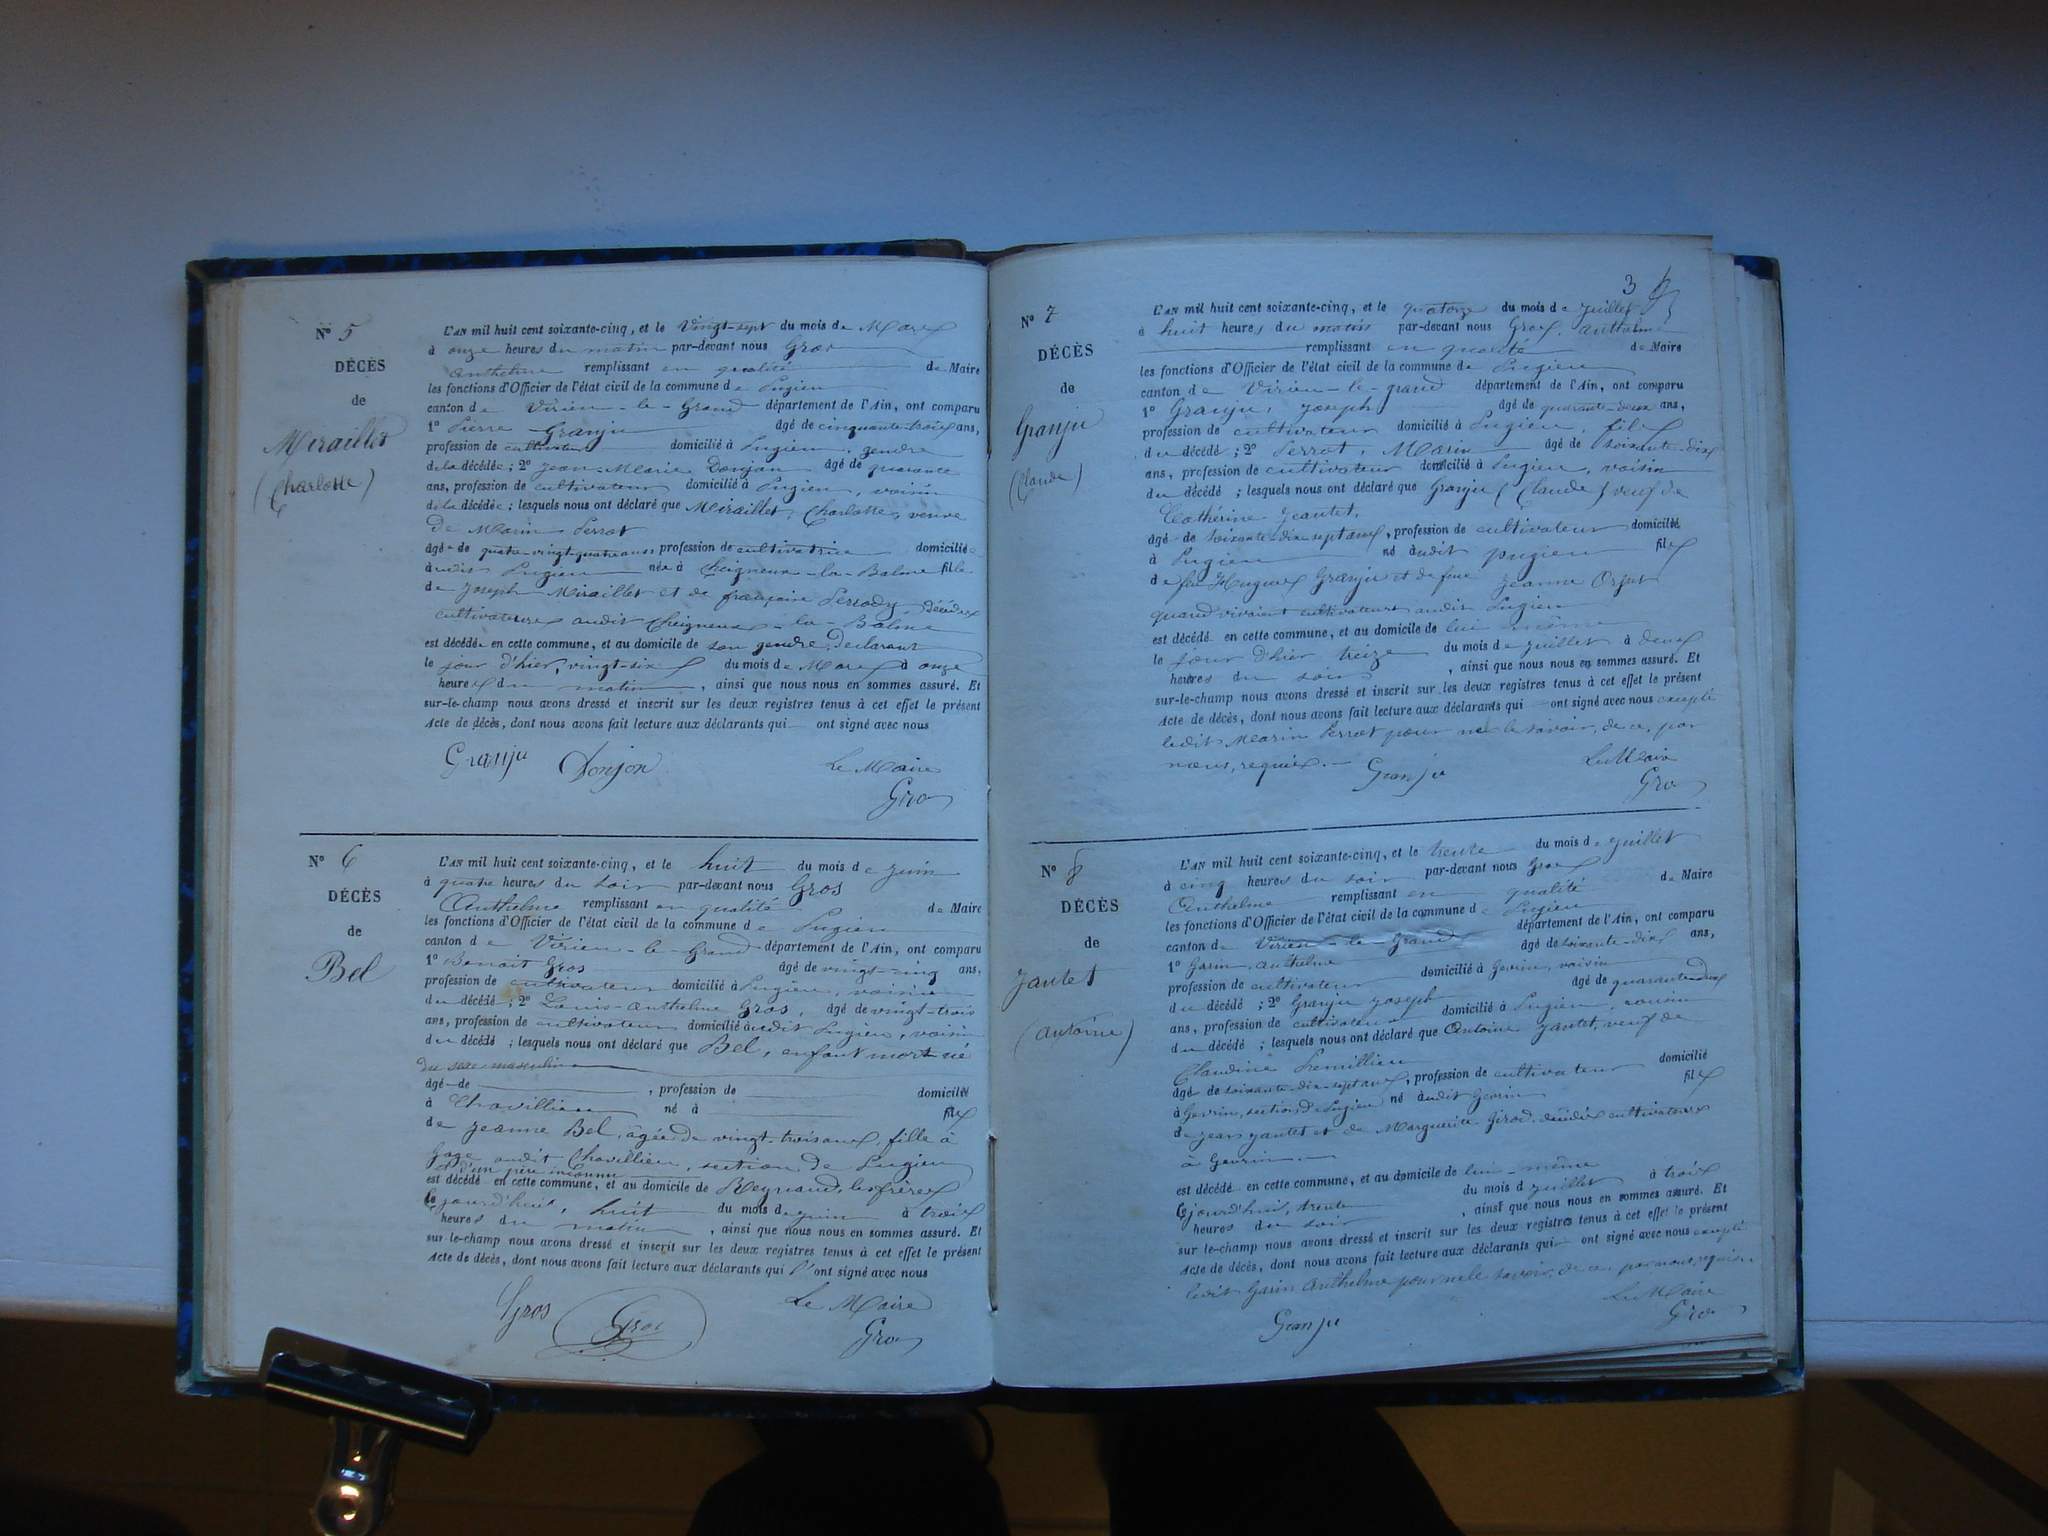 N° 5
DÉCÈS
de
Miraillet
(Charlotte)
L'AN mil huit cent soixante-cinq, et le Vingt-sept du mois de Mars
à onze heures du matin par-devant nous Gros
Anthelme remplissant en qualité de Maire
les fonctions d'Officier de l'état civil de la commune de Pugieu
canton de Virieu-le-Grand département de l'Ain, ont comparu
1° Pierre Granju âgé de cinquante-trois ans,
profession de cultivateur domicilié à Pugieu, gendre
de la décédée ; 2° Jean-Marie Donjon âgé de quarante
ans, profession de cultivateur domicilié à Pugieu, voisin
de la décédée ; lesquels nous ont déclaré que Miraillet, Charlotte, veuve
de Marin Perrot
âgée de quatre-vingt-quatre ans profession de cultivatrice domiciliée
audit Pugieu née à Cheigneux-la-Balme fille
de Joseph Miraillet et de françoise Perrody, décédés
cultivateurs audit Cheigneux-la-Balme
est décédée en cette commune, et au domicile de son gendre, déclarant
le jour d'hier, vingt-six du mois de Mars à onze
heures du matin, ainsi que nous nous en sommes assuré. Et
sur-le-champ nous avons dressé et inscrit sur les deux registres tenus à cet effet le présent
Acte de décès, dont nous avons fait lecture aux déclarants qui ont signé avec nous
Granju Donjon Le Maire
Gros
N° 6
DÉCÈS
de
Bel
L'AN mil huit cent soixante-cinq, et le huit du mois de juin
à quatre heures du soir par-devant nous Gros
Anthelme remplissant en qualité de Maire
les fonctions d'Officier de l'état civil de la commune de Pugieu
canton de Virieu-le-Grand département de l'Ain, ont comparu
1° Benoit Gros âgé de vingt-cinq ans,
profession de cultivateur domicilié à Pugieu, voisin
du décédé ; 2° Louis-Anthelme Gros, âgé de vingt-trois
ans, profession de cultivateur domicilié audit Pugieu, voisin
du décédé ; lesquels nous ont déclaré que Bel, enfant mort-né
du sexe masculin
âgé de , profession de domicilié
à Chavillieu né à fils
de Jeanne Bel, âgée de vingt-trois ans, fille à
gage audit Chavillieu, section de Pugieu
et d'un père inconnu
est décédé en cette commune, et au domicile de Reynaud, les frères
Cejourd'huit, huit du mois de juin à trois
heures du matin, ainsi que nous nous en sommes assuré. Et
sur-le-champ nous avons dressé et inscrit sur les deux registres tenus à cet effet le présent
Acte de décès, dont nous avons fait lecture aux déclarants qui l'ont signé avec nous
Gros Gros Le Maire
Gros
3
N° 7
DÉCÈS
de
Granju
(Claude)
L'AN mil huit cent soixante-cinq, et le quatorze du mois de juillet
à huit heures du matin par-devant nous Gros, Anthelme
remplissant en qualité de Maire
les fonctions d'Officier de l'état civil de la commune de Pugieu
canton de Virieu-le-grand département de l'Ain, ont comparu
1° Granju, Joseph âgé de quarante-deux ans,
profession de cultivateur domicilié à Pugieu, fils
du décédé ; 2° Perrot, Marin âgé de soixante-dix
ans, profession de cultivateur domicilié à Pugieu, voisin
du décédé ; lesquels nous ont déclaré que Granju (Claude) veuf de
Cathérine Jeantet,
âgé de soixante-dix-sept ans, profession de cultivateur domicilié
à Pugieu né audit pugieu fils
de feu Hugues Granju et de feue Jeanne
quand vivaient cultivateurs audit Pugieu
est décédé en cette commune, et au domicile de lui même
le jour d'hier treize du mois de juillet à deux
heures du soir, ainsi que nous nous en sommes assuré. Et
sur-le-champ nous avons dressé et inscrit sur les deux registres tenus à cet effet le présent
Acte de décès, dont nous avons fait lecture aux déclarants qui ont signé avec nous excepté
ledit Marin Perrot pour ne le savoir, de ce, par
nous, requis. Granju Le Maire
Gros
N° 8
DÉCÈS
de
Jantet
(antoine)
L'AN mil huit cent soixante-cinq, et le trente du mois de juillet
à cinq heures du soir par-devant nous Gros
Anthelme remplissant en qualité de Maire
les fonctions d'Officier de l'état civil de la commune de Pugieu
canton de Virieu-le-Grand département de l'Ain, ont comparu
1° Garin, anthelme âgé de soixante-dix ans,
profession de cultivateur domicilié à Gevrin, voisin
du décédé ; 2° Granju Joseph âgé de quarante-deux
ans, profession de cultivateur domicilié à Pugieu, cousin
du décédé ; lesquels nous ont déclaré que Antoine Jantet, veuf de
Claudine Premillieu
âgé de soixante-dix-sept ans, profession de cultivateur domicilié
à Gevrin, section de Pugieu né audit Gevrin fils
de Jean Jantet et de Marguerite Girod, décédés cultivateurs
à Gevrin
est décédé en cette commune, et au domicile de lui-même
Cejourd'hui, trente du mois d juillet à trois
heures du soir, ainsi que nous nous en sommes assuré. Et
sur-le-champ nous avons dressé et inscrit sur les deux registres tenus à cet effet le présent
Acte de décès, dont nous avons fait lecture aux déclarants qui ont signé avec nous excepté
ledit Garin Anthelme pour ne le savoir, de ce par nous, requis.
Granju Le Maire
Gros